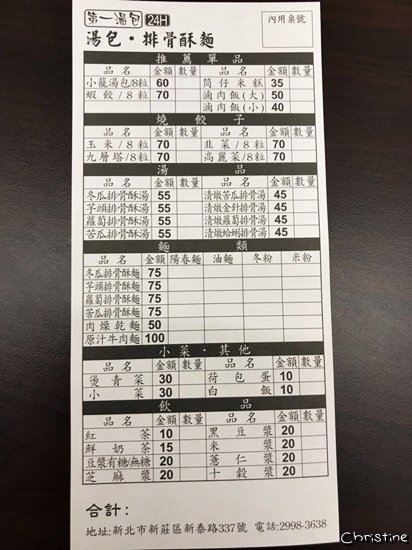 第一湯包 24H 內用桌號
湯包·排骨酥麵
推薦單品
品名 金額 數量 品名 金額 數量
小籠湯包/8粒 60 筒仔米糕 35
蝦餃/8粒 70 滷肉飯(大) 50
滷肉飯(小) 40
燒餃子
品名 金額 數量 品名 金額 數量
玉米/8粒 70 韭菜/8粒 70
九層塔/8粒 70 高麗菜/8粒 70
湯品
品名 金額 數量 品名 金額 數量
冬瓜排骨酥湯 55 清燉苦瓜排骨湯 45
芋頭排骨酥湯 55 清燉金針排骨湯 45
蘿蔔排骨酥湯 55 清燉蘿蔔排骨湯 45
苦瓜排骨酥湯 55 清燉蛤蜊排骨湯 45
麵類
品名 金額 陽春麵 油麵 冬粉 米粉
冬瓜排骨酥麵 75
芋頭排骨酥麵 75
蘿蔔排骨酥麵 75
苦瓜排骨酥麵 75
肉燥乾麵 50
原汁牛肉麵 100
小菜·其他
品名 金額 數量 品名 金額 數量
燙青菜 30 荷包蛋 10
小菜 30 白飯 10
飲品
品名 金額 數量 品名 金額 數量
紅茶 10 黑豆漿 20
鮮奶茶 15 米漿 20
豆漿有糖/無糖 20 薏仁漿 20
芝麻漿 20 十穀漿 20
合計:
地址:新北市新莊區新泰路337號 電話:2998-3638
Christine